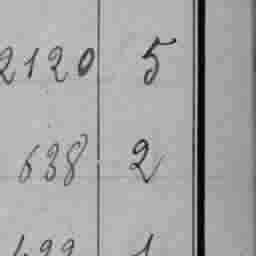 2120 5
638 2